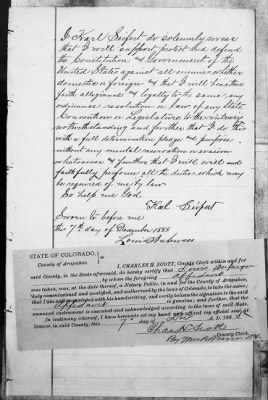 I Karl Seifert do solemnly swear
that I will support protect and defend
the Constitution & Government of the
United States against all enemies whether
domestic or foreign & that I will bear true
faith allegiance & loyalty to the same any
ordinance resolution or law of any State
Convention or Legislature to the contrary
notwithstanding and further that I do this
with a full determination pledge & purpose
without any mental reservation or evasion
whatsoever & further that I will well and
faithfully perform all the duties which may
be required of me by law
So help me God
Karl Seifert
Sworn to before me
this 7th day of December 1888
STATE OF COLORADO,
County of Arapahoe.
I, CHARLES H. SCOTT, County Clerk within and for
said County, in the State aforesaid, do hereby certify that
by whom the foregoing Affidavit
was taken, was, at the date thereof, a Notary Public, in and for the County of Arapahoe,
duly commissioned and qualified, and authorized by the laws of Colorado, to take the same;
that I am well acquainted with his handwriting, and verily believe the signature to the said
Affidavit is genuine; and further, that the
annexed instrument is executed and acknowledged according to the laws of said State.
In testimony whereof, I have hereunto set my hand and affixed my official seal, at
Denver, in said County, this 7 day of Dec A. D. 188
Chas H Scott
County Clerk
By